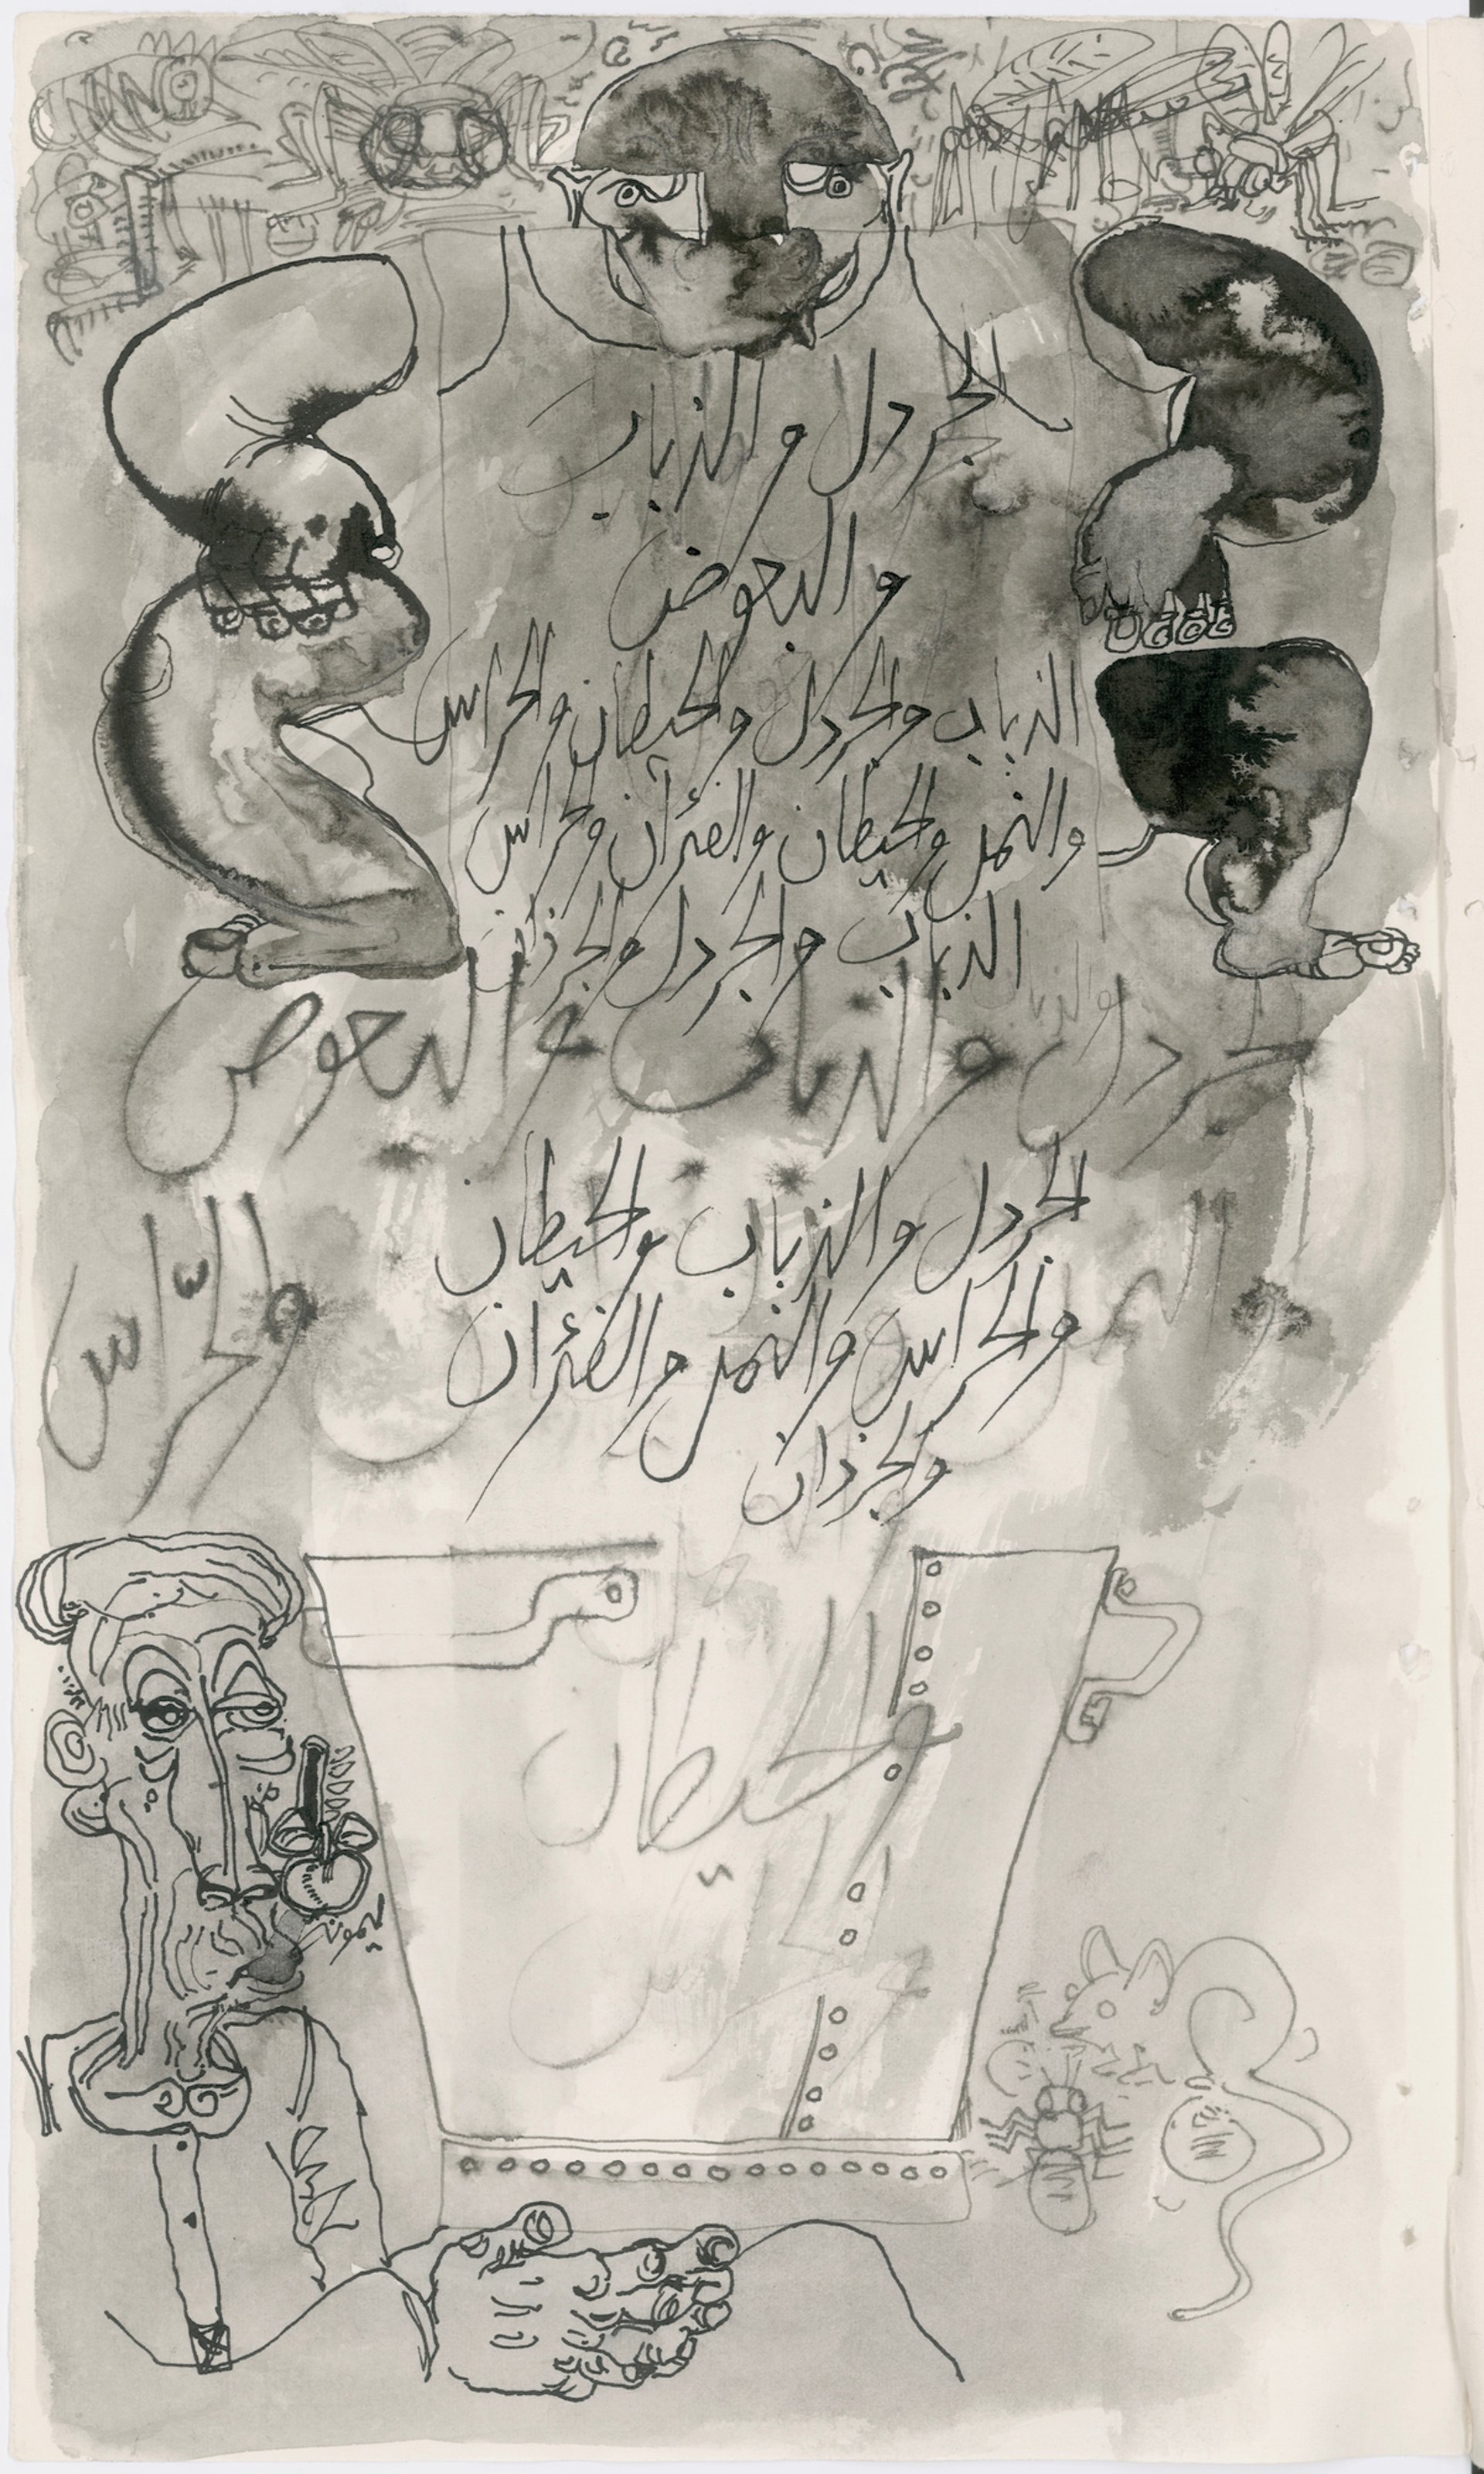 الجردل والذباب
والبعوض
الذباب والجردل والحيطان والحراس
والنمل والحيطان والفئران والحراس
الذباب والجردل والجرذان
جردل والذباب والبعوض
الجردل والذباب والحيطان
والحراس والنمل والفئران
والجرذان
والحراس
والحيطان